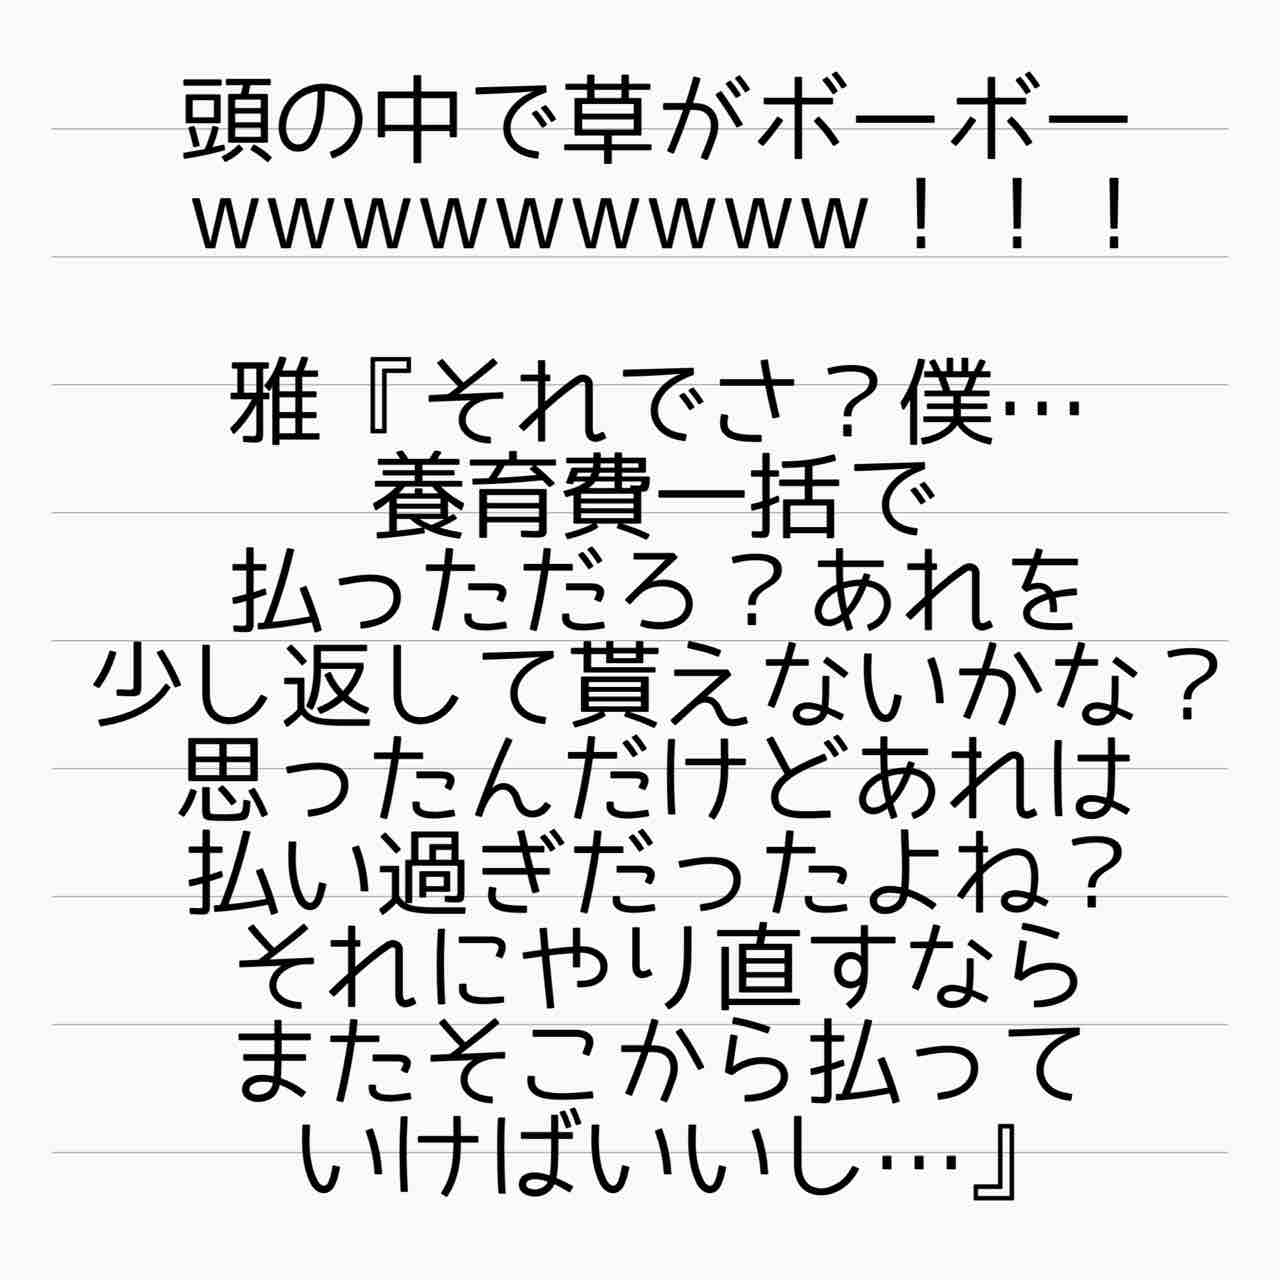 頭の中で草がボーボー
wwwwwwwww！！！
雅『それでさ？僕…
養育費一括で
払っただろ？あれを
少し返して貰えないかな？
思ったんだけどあれは
払い過ぎだったよね？
それにやり直すなら
またそこから払って
いけばいいし…』